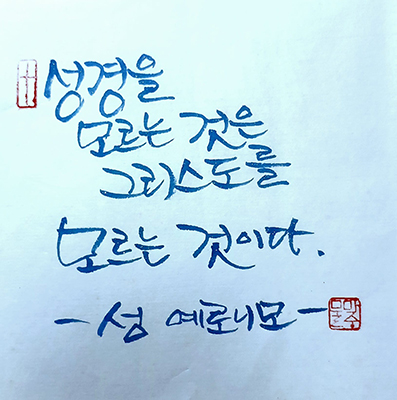 성경을
모르는 것은
그리스도를
모르는 것이다.
- 성 예로니모 -